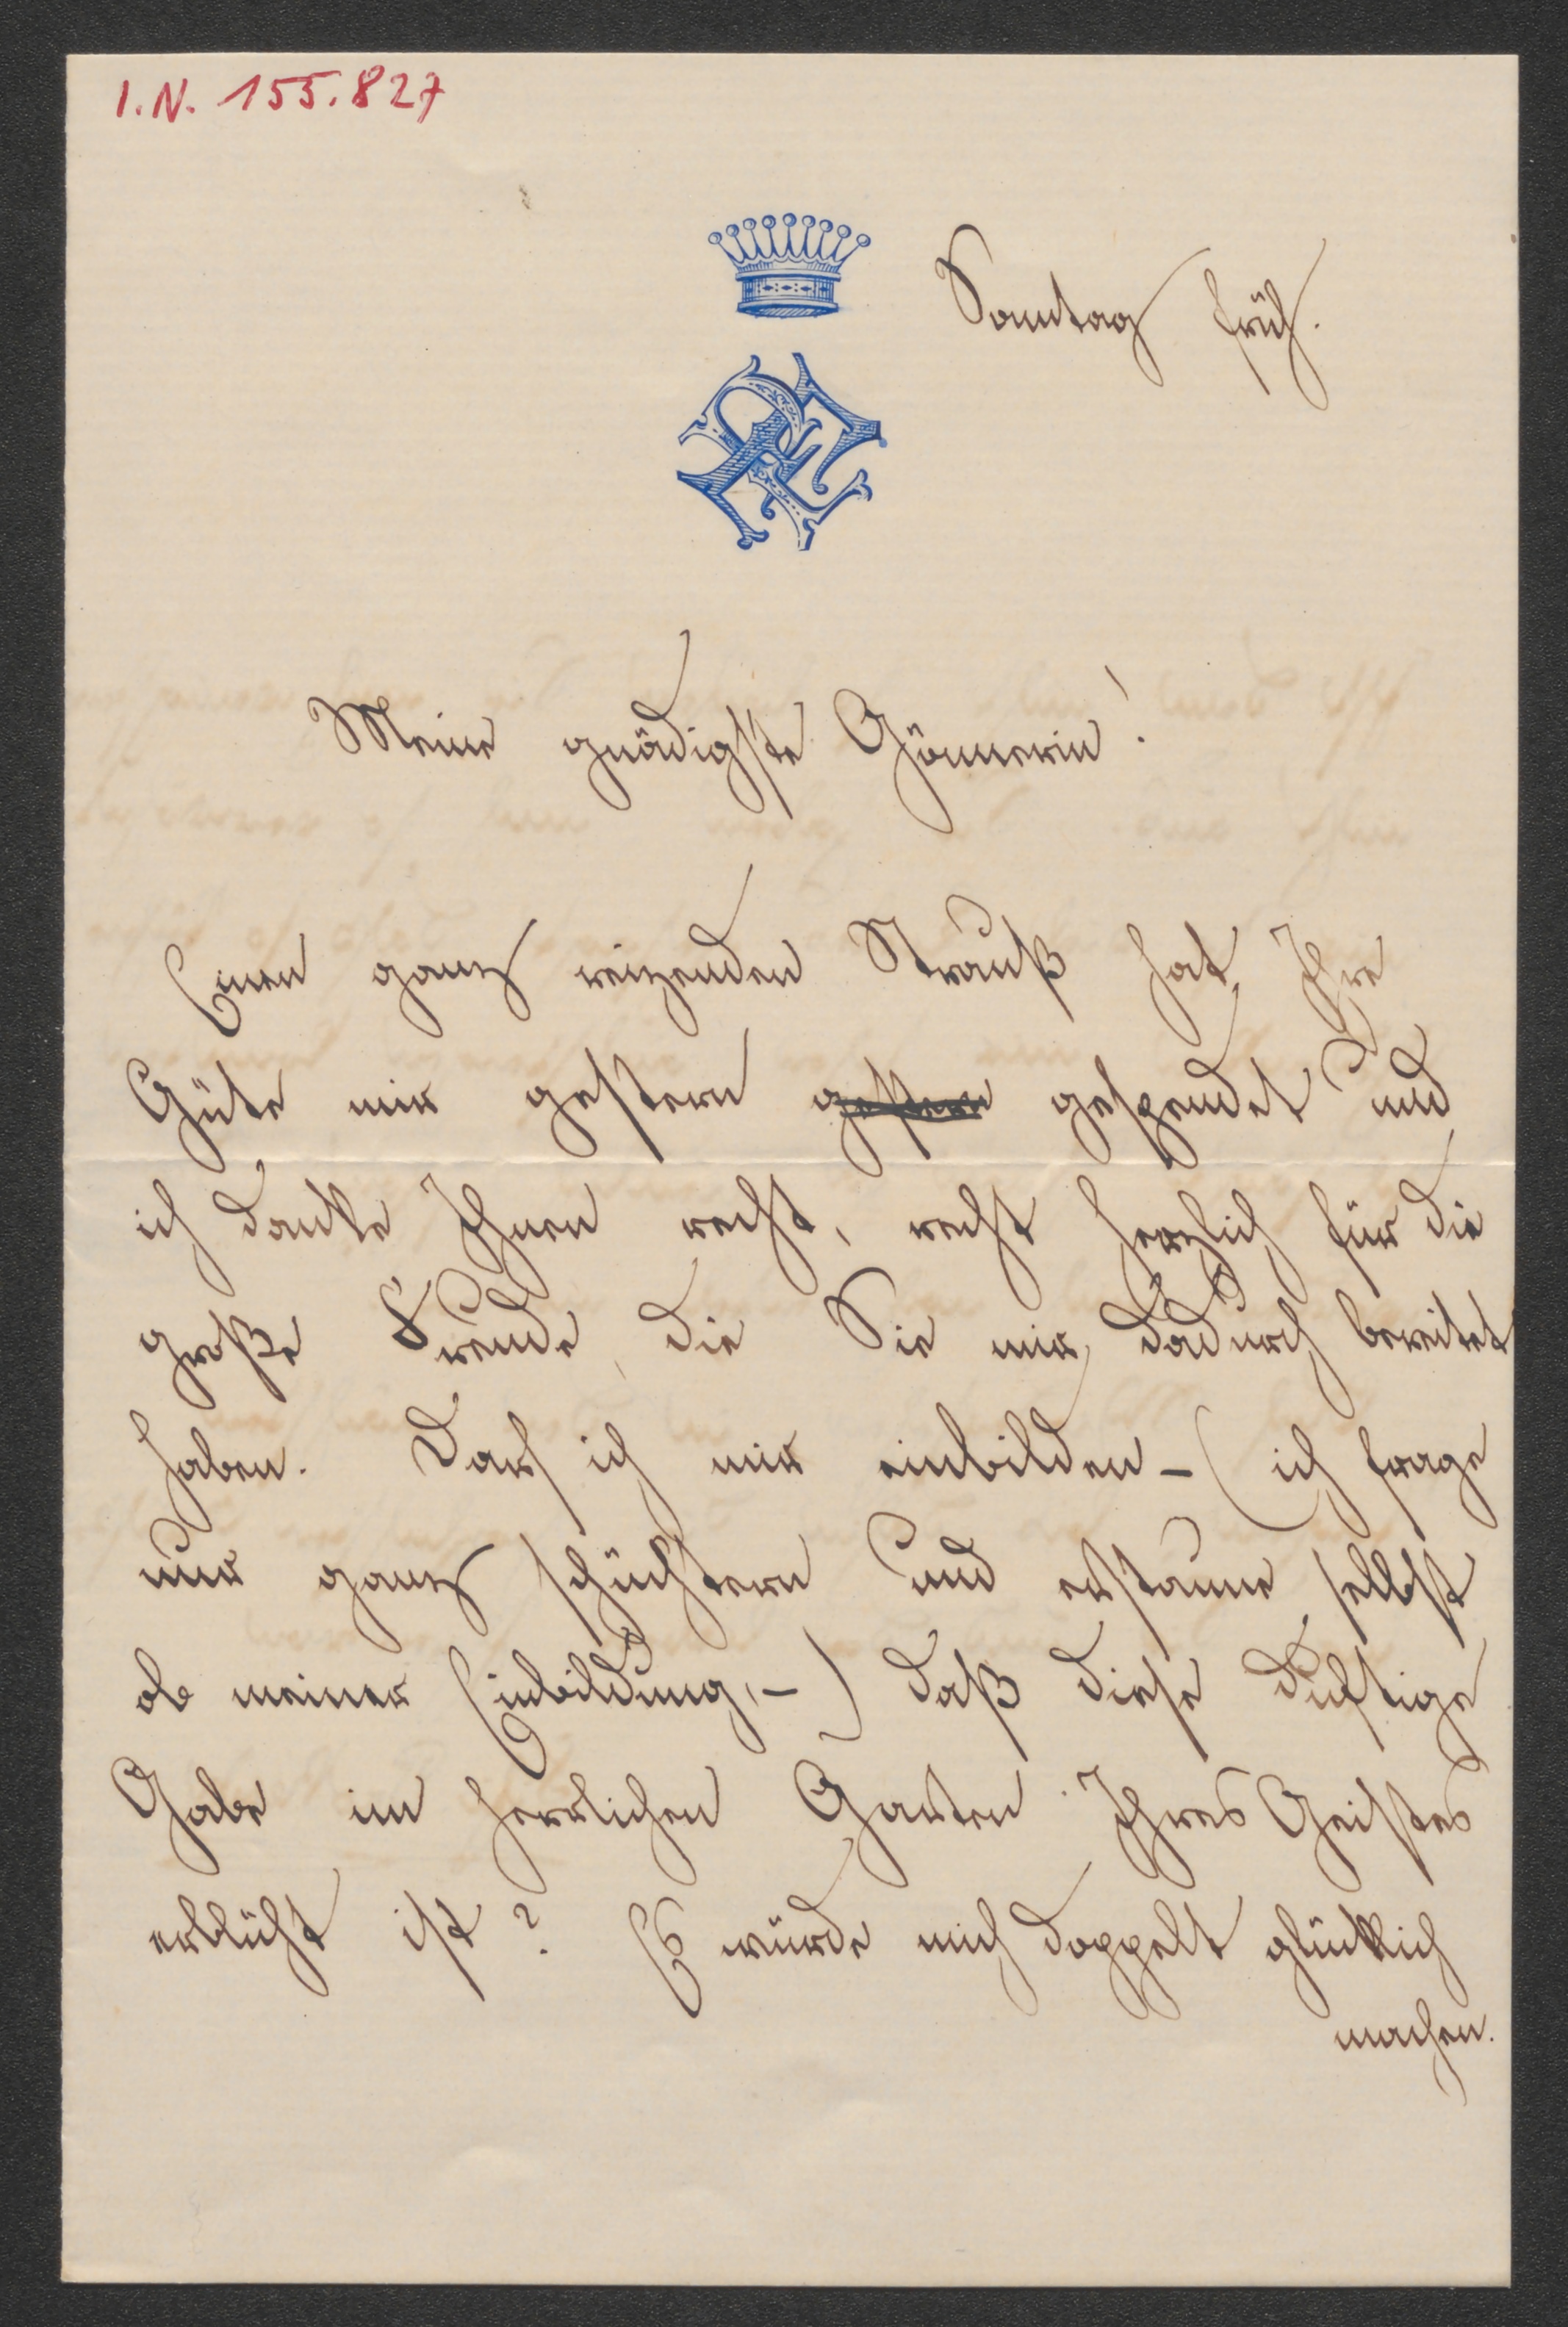 I.N. 155.827
Sonntag früh.
Meine gnädigste Gönnerin!
Einen ganz reizenden Strauß hat Ihre
Güte mir gestern gestern gespendet und
ich danke Ihnen recht, recht herzlich für die
große Freude, die Sie mir dadurch bereitet
haben. Darf ich mir einbilden – (ich frage
nur ganz schüchtern und erstaune selbst
ob meiner Einbildung, –) daß diese duftige
Gabe im herrlichen Garten Ihres Geistes
erblüht ist? Es würde mich doppelt glücklich
machen.